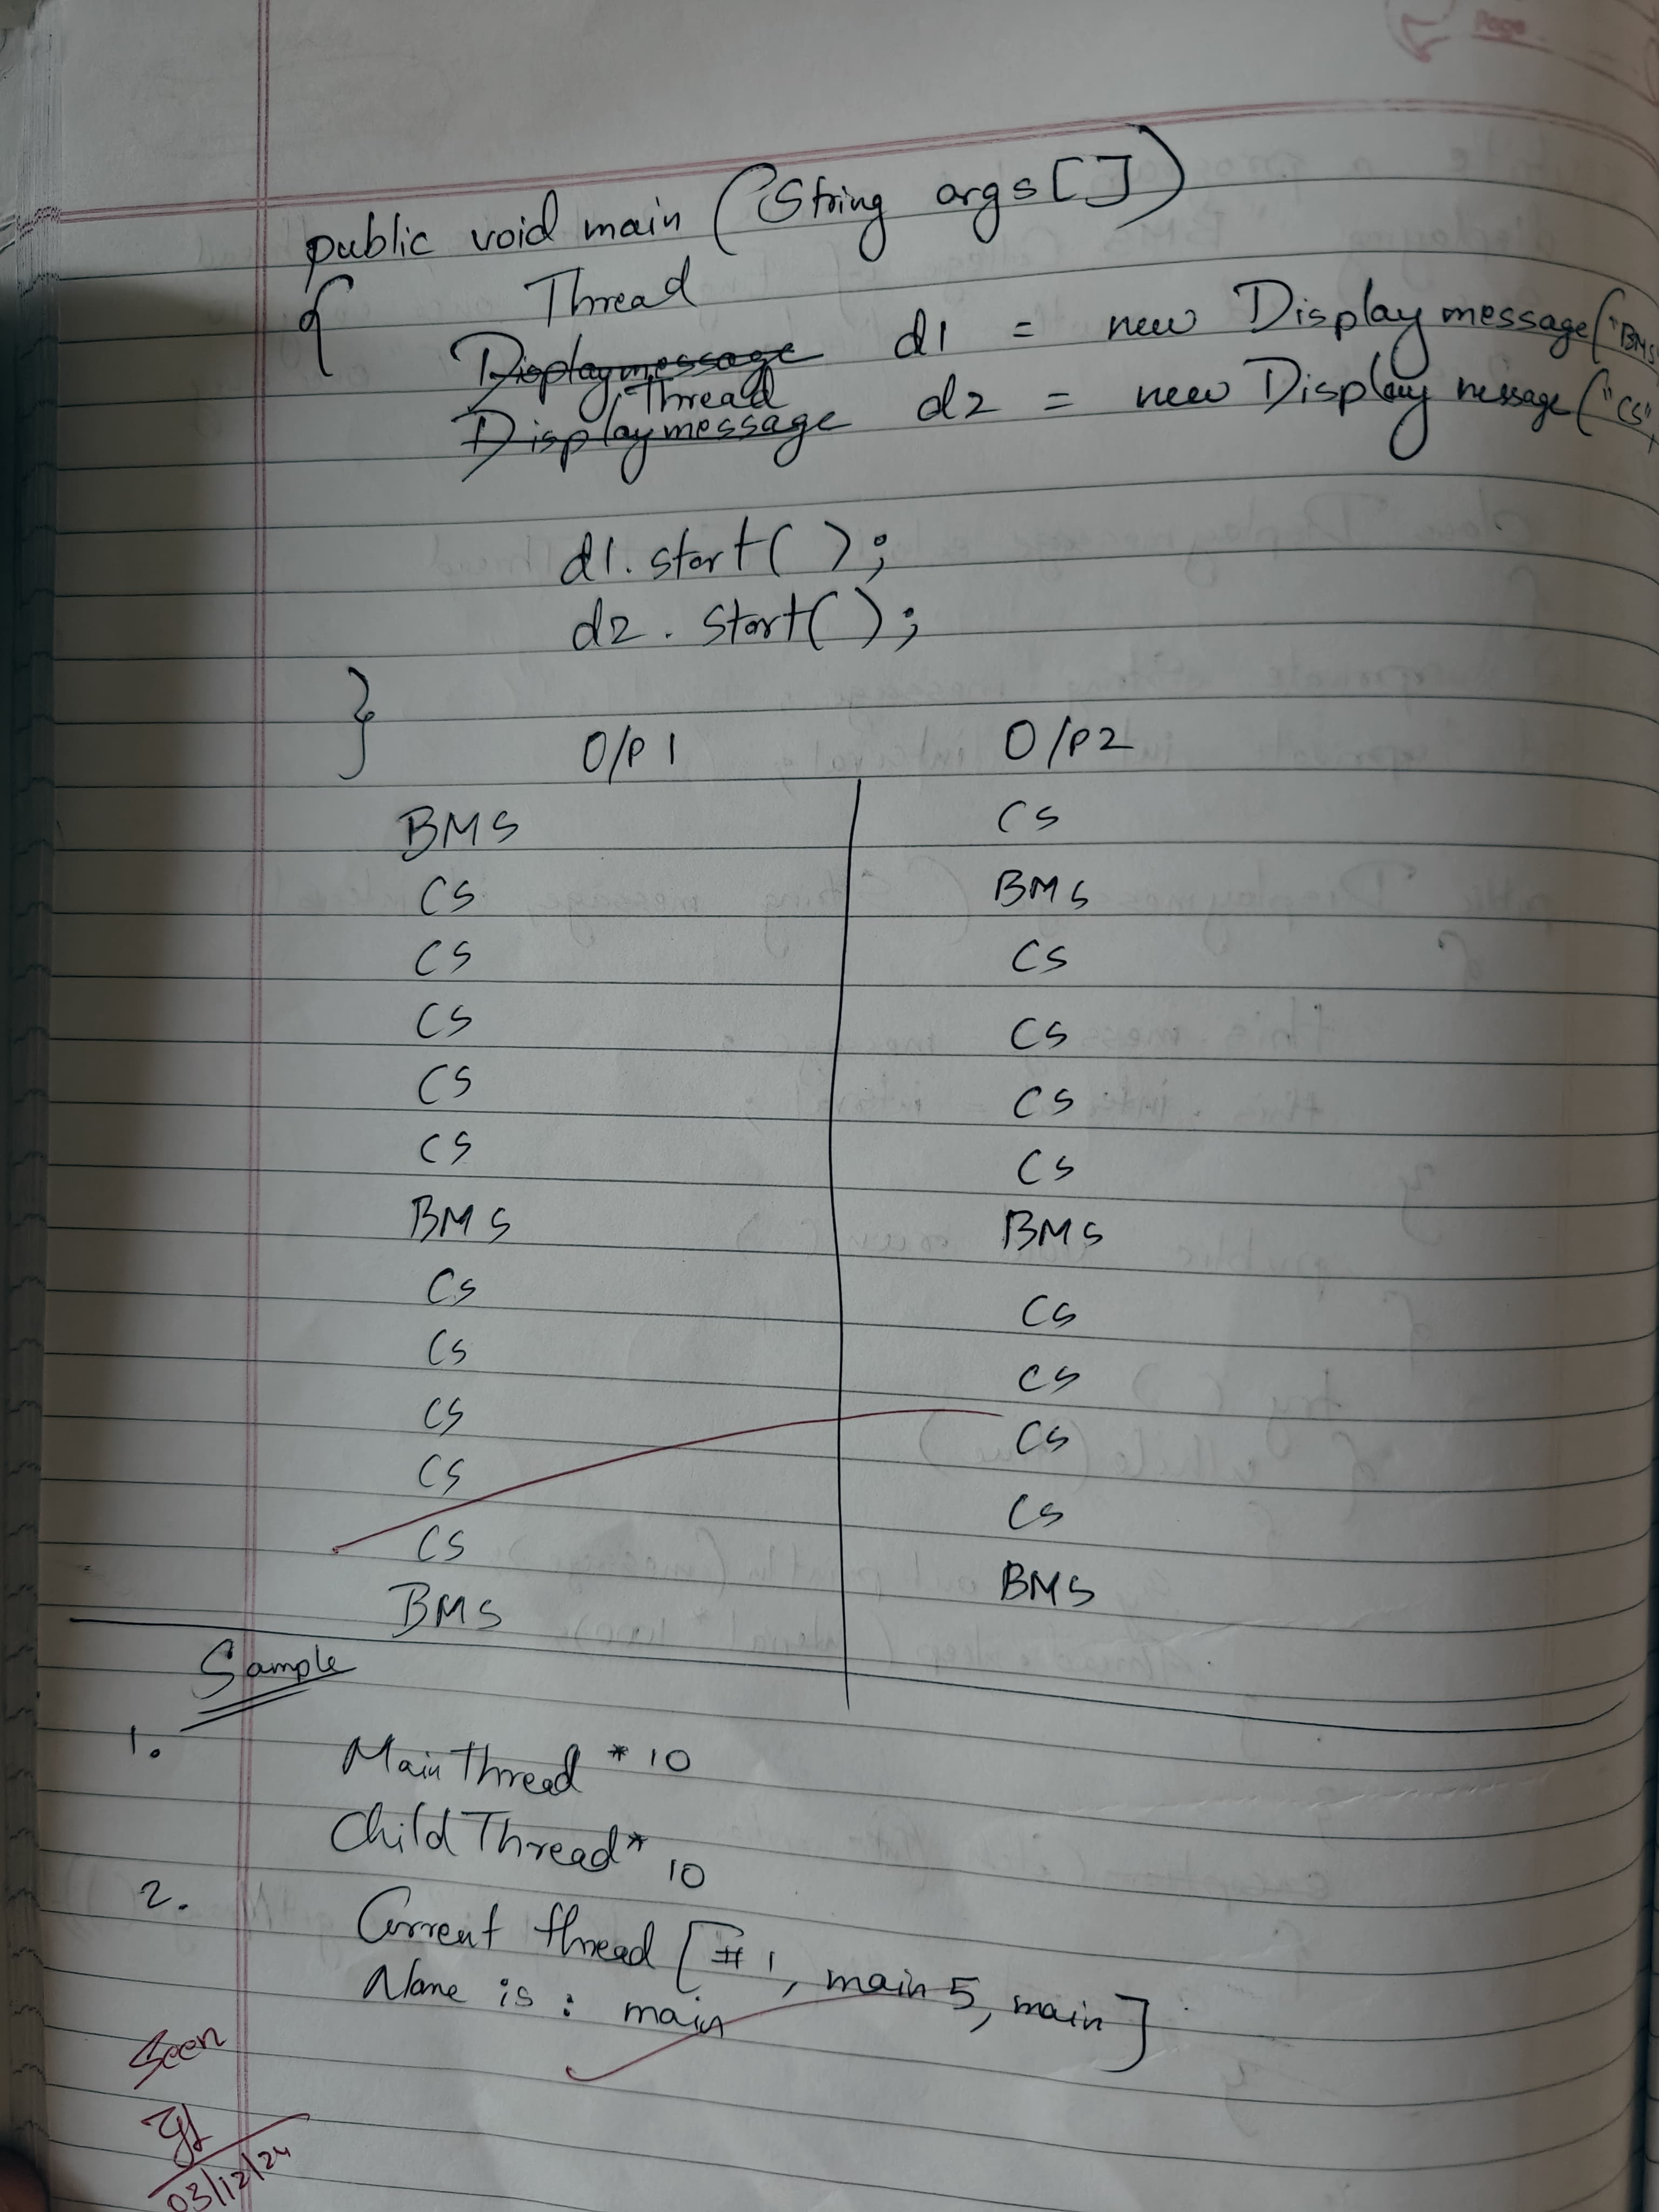 Page
public void main (String args[])
{ Thread
Displaymessage d1 = new Displaymessage("BMS
Thread
Displaymessage d2 = new Displaymessage("CS",
d1.start( );
d2.start( );
}
O/P 1 O/P 2
BMS CS
CS BMS
CS CS
CS CS
CS CS
CS CS
BMS BMS
CS CS
CS CS
CS CS
CS CS
CS BMS
BMS
Sample
1. Main Thread * 10
Child Thread * 10
2. Current thread [#1, main 5, main]
Name is : main
Seen
03/12/24